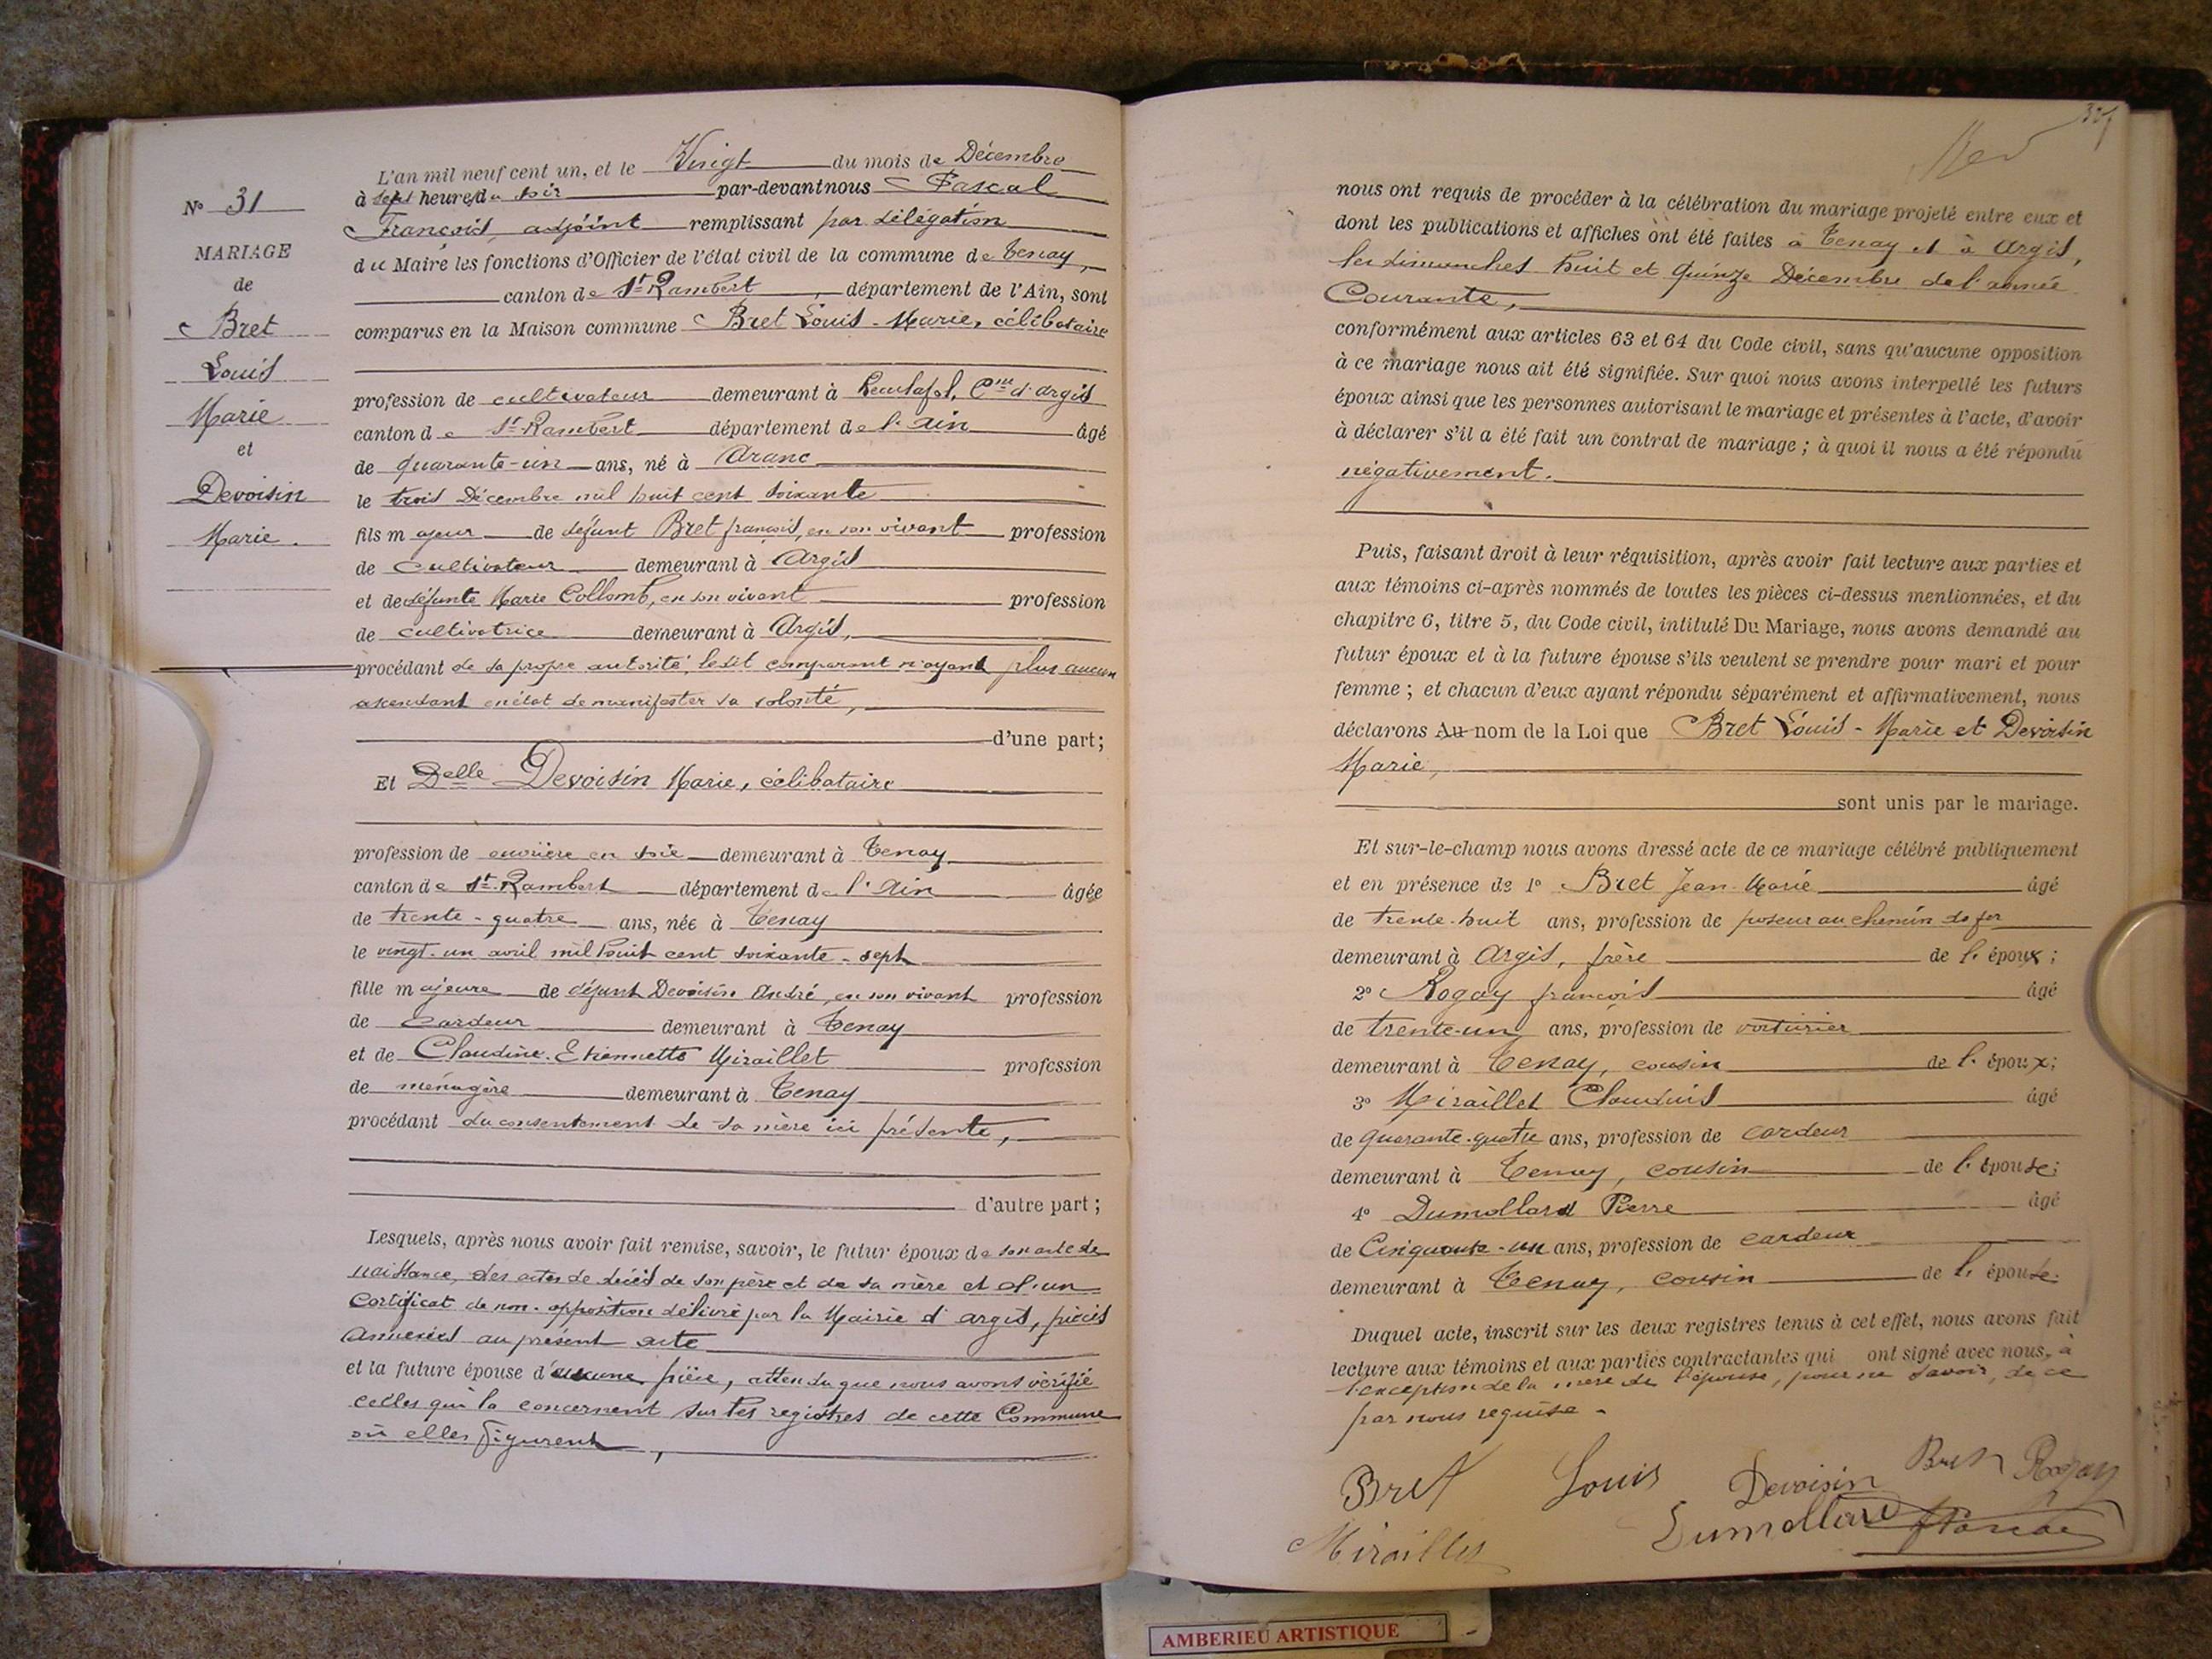 N° 31
MARIAGE
de
Bret
Louis
Marie
et
Devoisin
Marie.
L'an mil neuf cent un, et le Vingt du mois de Décembre
à sept heures du soir par-devant nous Pascal
François, adjoint remplissant par délégation
du Maire les fonctions d'Officier de l'état civil de la commune de Tenay,
canton de St-Rambert, département de l'Ain, sont
comparus en la Maison commune Bret Louis-Marie, célibataire
profession de cultivateur demeurant à Reculafol, Cne d'argis
canton de St-Rambert département de l'Ain âgé
de quarante-un ans, né à Aranc
le trois Décembre mil huit cent soixante
fils majeur de défunt Bret françois, en son vivant profession
de cultivateur demeurant à Argis
et de défunte Marie Collomb, en son vivant profession
de cultivatrice demeurant à Argis,
procédant de sa propre autorité, ledit comparant n'ayant plus aucun
ascendant en état de manifester sa volonté,
d'une part;
Et Delle Devoisin Marie, célibataire
profession de ouvrière en soie demeurant à Tenay
canton de St-Rambert département de l'Ain âgée
de trente-quatre ans, née à Tenay
le vingt-un avril mil huit cent soixante-sept
fille majeure de défunt Devoisin André, en son vivant profession
de cardeur demeurant à Tenay
et de Claudine-Etiennette Miraillet profession
de ménagère demeurant à Tenay
procédant du consentement de sa mère ici présente,
d'autre part;
Lesquels, après nous avoir fait remise, savoir, le futur époux de son acte de
naissance, des actes de décès de son père et de sa mère et d'un
certificat de non-opposition délivré par la Mairie d'argis, pièces
annexées au présent acte
et la future épouse d'aucune pièce, attendu que nous avons vérifié
celles qui la concernent sur les registres de cette Commune
où elles figurent,
nous ont requis de procéder à la célébration du mariage projeté entre eux et
dont les publications et affiches ont été faites à Tenay et à Argis,
les dimanches huit et quinze Décembre de l'année
Courante,
conformément aux articles 63 et 64 du Code civil, sans qu'aucune opposition
à ce mariage nous ait été signifiée. Sur quoi nous avons interpellé les futurs
époux ainsi que les personnes autorisant le mariage et présentes à l'acte, d'avoir
à déclarer s'il a été fait un contrat de mariage; à quoi il nous a été répondu
négativement.
Puis, faisant droit à leur réquisition, après avoir fait lecture aux parties et
aux témoins ci-après nommés de toutes les pièces ci-dessus mentionnées, et du
chapitre 6, titre 5, du Code civil, intitulé Du Mariage, nous avons demandé au
futur époux et à la future épouse s'ils veulent se prendre pour mari et pour
femme; et chacun d'eux ayant répondu séparément et affirmativement, nous
déclarons Au nom de la Loi que Bret Louis-Marie et Devoisin
Marie,
sont unis par le mariage.
Et sur-le-champ nous avons dressé acte de ce mariage célébré publiquement
et en présence de 1° Bret Jean-Marie âgé
de trente-huit ans, profession de poseur au chemin de fer
demeurant à Argis, frère de l'époux;
2° Rogay françois âgé
de trente-un ans, profession de voiturier
demeurant à Tenay, cousin de l'époux;
3° Miraillet Claudius âgé
de quarante-quatre ans, profession de cardeur
demeurant à Tenay, cousin de l'épouse;
4° Dumollard Pierre âgé
de Cinquante-un ans, profession de cardeur
demeurant à Tenay, cousin de l'épouse.
Duquel acte, inscrit sur les deux registres tenus à cet effet, nous avons fait
lecture aux témoins et aux parties contractantes qui ont signé avec nous, à
l'exception de la mère de l'épouse, pour ne savoir, de ce
par nous requise.
Bret Louis Devoisin Bret Rogay
Miraillet Dumollard Pascal
AMBERIEU ARTISTIQUE